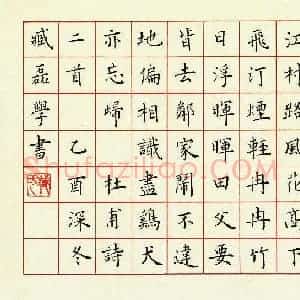 江村路風花高下
飛汀煙輕冉冉竹
日浮暉暉田父要
皆去鄰家鬧不違
地偏相識盡鷄犬
亦忘歸 杜甫詩
二首 乙酉深冬
臧磊學書